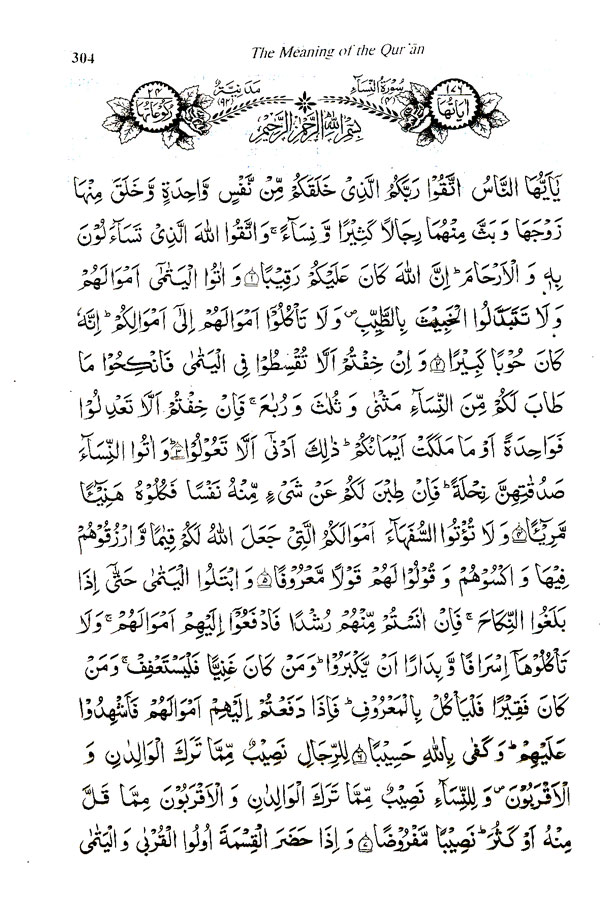 304 The Meaning of the Qur'ān
٢٤ رکوعاتها مدنیة (٩٢) سورة النساء (٤) ١٧٦ ایاتها
بِسْمِ اللّٰهِ الرَّحْمٰنِ الرَّحِيْمِ
يٰۤاَيُّهَا النَّاسُ اتَّقُوْا رَبَّكُمُ الَّذِیْ خَلَقَكُمْ مِّنْ نَّفْسٍ وَّاحِدَةٍ وَّخَلَقَ مِنْهَا
زَوْجَهَا وَ بَثَّ مِنْهُمَا رِجَالًا كَثِيْرًا وَّ نِسَآءً ۚ وَاتَّقُوا اللّٰهَ الَّذِیْ تَسَآءَلُوْنَ
بِهٖ وَ الْاَرْحَامَ ؕ اِنَّ اللّٰهَ كَانَ عَلَيْكُمْ رَقِيْبًا ﴿۱﴾ وَ اٰتُوا الْيَتٰمٰۤی اَمْوَالَهُمْ
وَلَا تَتَبَدَّلُوا الْخَبِيْثَ بِالطَّيِّبِ ۪ وَلَا تَاْكُلُوْۤا اَمْوَالَهُمْ اِلٰۤی اَمْوَالِكُمْ ؕ اِنَّهٗ
كَانَ حُوْبًا كَبِيْرًا ﴿۲﴾ وَ اِنْ خِفْتُمْ اَلَّا تُقْسِطُوْا فِی الْيَتٰمٰی فَانْكِحُوْا مَا
طَابَ لَكُمْ مِّنَ النِّسَآءِ مَثْنٰی وَ ثُلٰثَ وَ رُبٰعَ ۚ فَاِنْ خِفْتُمْ اَلَّا تَعْدِلُوْا
فَوَاحِدَةً اَوْ مَا مَلَكَتْ اَيْمَانُكُمْ ؕ ذٰلِكَ اَدْنٰۤی اَلَّا تَعُوْلُوْا ﴿۳﴾ وَ اٰتُوا النِّسَآءَ
صَدُقٰتِهِنَّ نِحْلَةً ؕ فَاِنْ طِبْنَ لَكُمْ عَنْ شَیْءٍ مِّنْهُ نَفْسًا فَكُلُوْهُ هَنِيْٓـًٔا
مَّرِيْٓـًٔا ﴿۴﴾ وَ لَا تُؤْتُوا السُّفَهَآءَ اَمْوَالَكُمُ الَّتِیْ جَعَلَ اللّٰهُ لَكُمْ قِيٰمًا وَّ ارْزُقُوْهُمْ
فِيْهَا وَ اكْسُوْهُمْ وَ قُوْلُوْا لَهُمْ قَوْلًا مَّعْرُوْفًا ﴿۵﴾ وَ ابْتَلُوا الْيَتٰمٰی حَتّٰۤی اِذَا
بَلَغُوا النِّكَاحَ ۚ فَاِنْ اٰنَسْتُمْ مِّنْهُمْ رُشْدًا فَادْفَعُوْۤا اِلَيْهِمْ اَمْوَالَهُمْ ۚ وَلَا
تَاْكُلُوْهَاۤ اِسْرَافًا وَّ بِدَارًا اَنْ يَّكْبَرُوْا ؕ وَمَنْ كَانَ غَنِيًّا فَلْيَسْتَعْفِفْ ۚ وَمَنْ
كَانَ فَقِيْرًا فَلْيَاْكُلْ بِالْمَعْرُوْفِ ؕ فَاِذَا دَفَعْتُمْ اِلَيْهِمْ اَمْوَالَهُمْ فَاَشْهِدُوْا
عَلَيْهِمْ ؕ وَ كَفٰی بِاللّٰهِ حَسِيْبًا ﴿۶﴾ لِلرِّجَالِ نَصِيْبٌ مِّمَّا تَرَكَ الْوَالِدٰنِ وَ
الْاَقْرَبُوْنَ ۪ وَ لِلنِّسَآءِ نَصِيْبٌ مِّمَّا تَرَكَ الْوَالِدٰنِ وَ الْاَقْرَبُوْنَ مِمَّا قَلَّ
مِنْهُ اَوْ كَثُرَ ؕ نَصِيْبًا مَّفْرُوْضًا ﴿۷﴾ وَ اِذَا حَضَرَ الْقِسْمَةَ اُولُوا الْقُرْبٰی وَ الْيَتٰمٰی